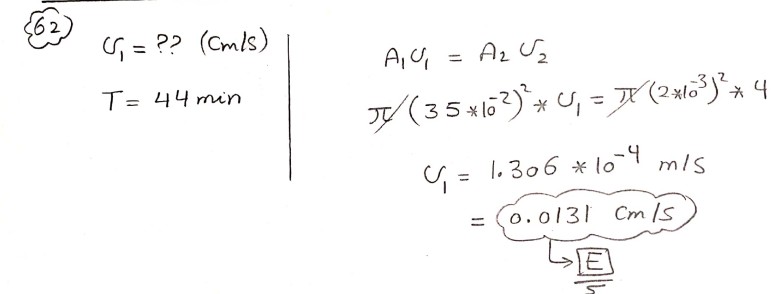 62
υ₁ = ?? (cm/s)
T = 44 min
A₁υ₁ = A₂υ₂
π(35*10⁻²)² * υ₁ = π(2*10⁻³)² * 4
υ₁ = 1.306 * 10⁻⁴ m/s
= 0.0131 cm/s
E
5